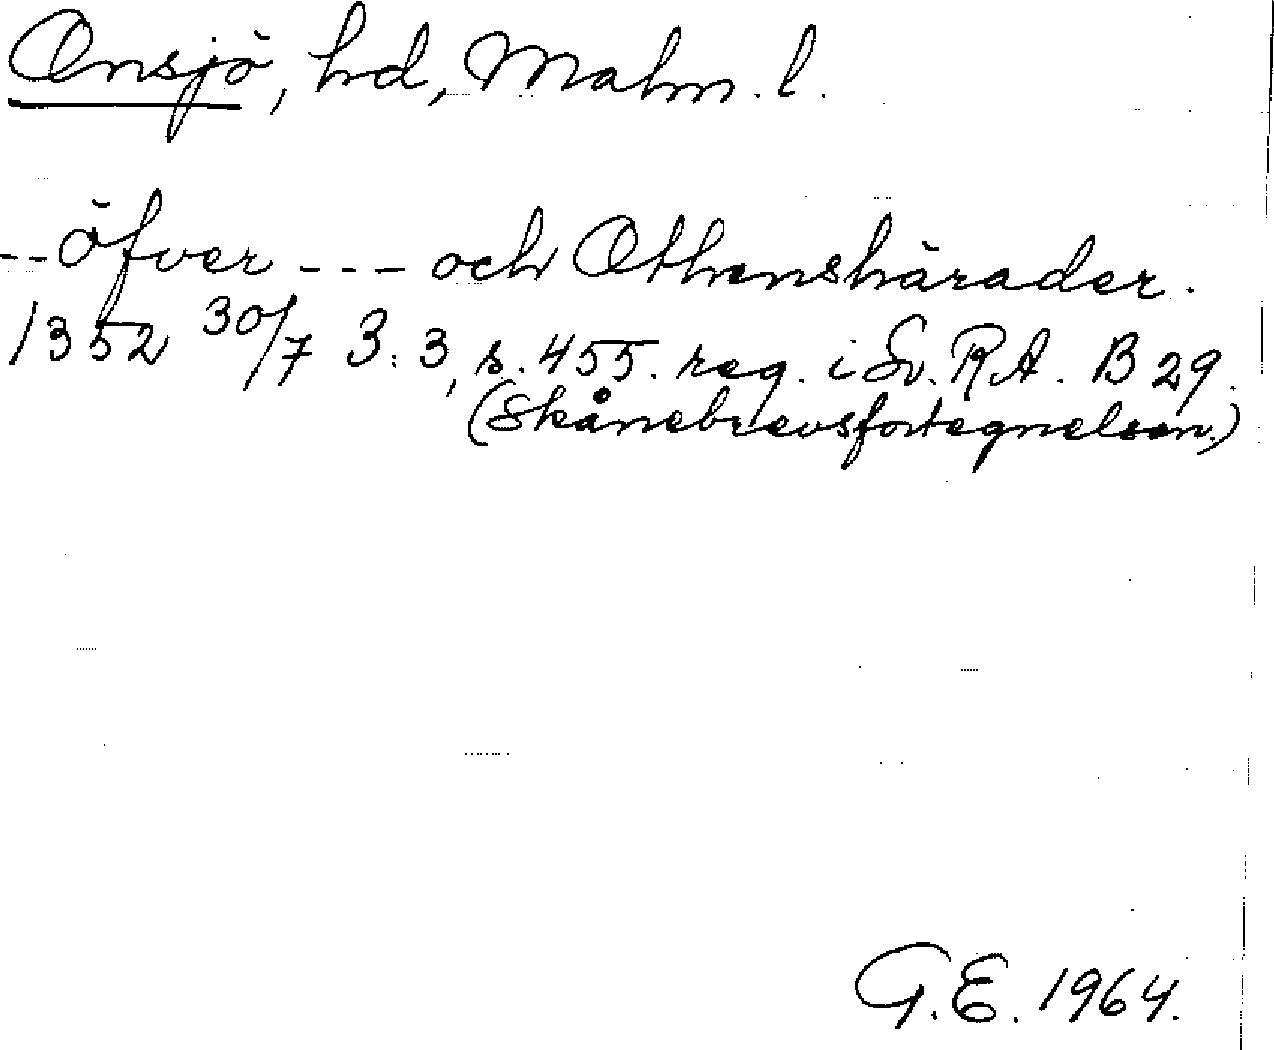 Onsjö, hd, Malm. l.
-- öfver --- och Othenshärader.
1352 30/7 3:3, s. 455. reg. i Sv. R A. B 29.
(Skånebrevsfortegnelsen.)
G.E. 1964.